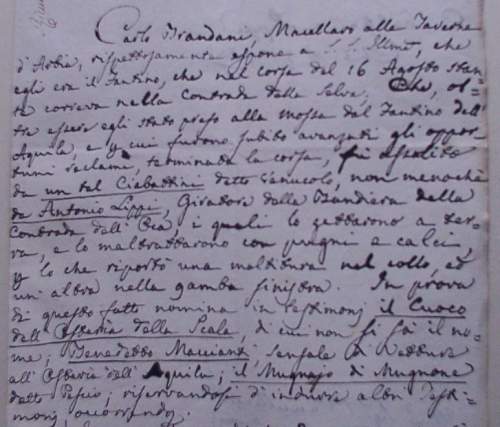 Carlo Brandani, Macellaro alle Taverne
d'Arbia, rispettosamente espone a S. S. Illma, che
egli era il Fantino, che nel corso del 16 Agosto stan-
te correva nella Contrada della Selva; Che, ol-
tre essere egli stato preso alla mossa dal Fantino dell'
Aquila, e p cui furono subito avanzati gli oppor-
tuni reclami, terminata la corsa, fù assalito
da un tal Ciabattini detto Venucolo, non menochè
da Antonio Lippi, Giratore della Bandiera della
Contrada dell'Oca, i quali lo gettarono a ter-
ra, e lo maltrattarono con pugni e calci,
p lo che riportò una malitura nel collo, ed
un'altra nella gamba sinistra. In prova
di questo fatto nomina in testimonj il Cuoco
dell'Osteria della Scala, di cui non si sà il no-
me; Benedetto Maccianti sensale di Vetture
all'Osteria dell'Aquila; il Mugnajo di Mugnone
detto Pescio; riservandosi d'indurre altri Testi-
monj, occorrendo.